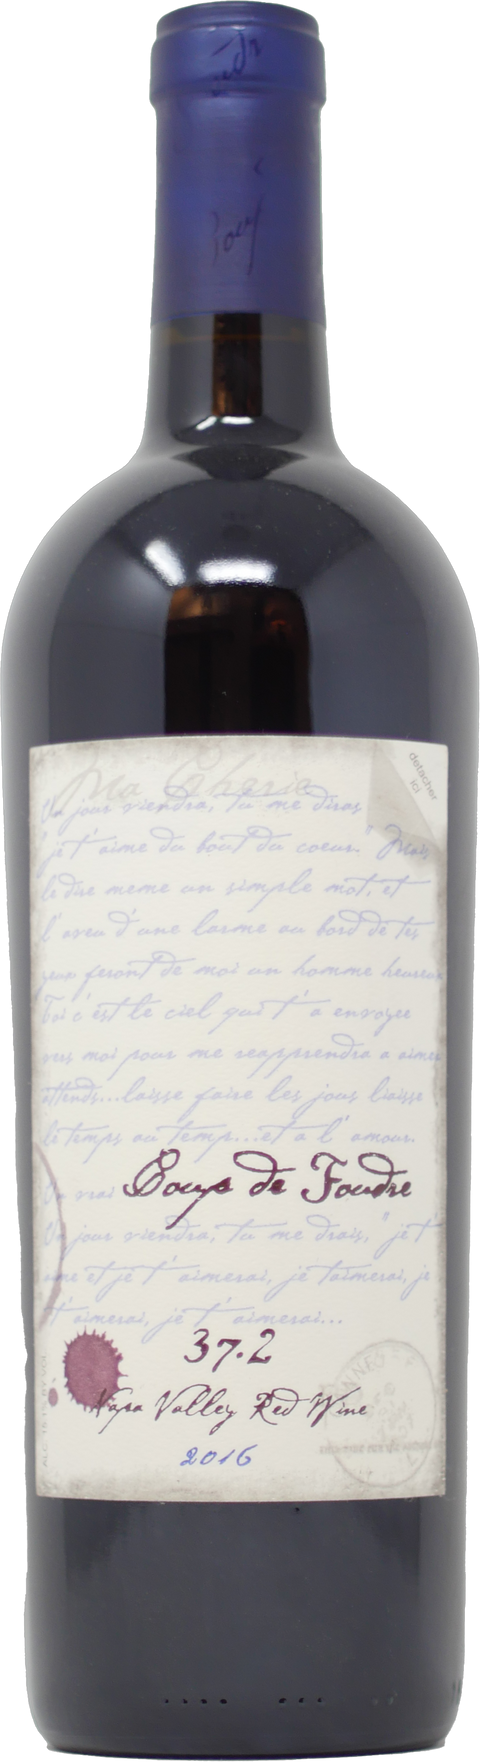 detacher
ici
Ma Cherie
Un jour viendra, tu me diras
"je t'aime du bout du coeur." Mais
le dire meme un simple mot, et
l'aveu d'une larme au bord de tes
yeux feront de moi un homme heureux
Toi c'est le ciel qui t'a envoyer
vers moi pour me reapprendra a aimer
attends...laisse faire les jous liaisse
le temps au temps...et a l'amour.
Un vrai Coups de Foudre
Un jour viendra, tu me drais, "je t'
aime et je t'aimerai, je taimerai, je
t'aimerai, je t'aimerai...
37.2
Napa Valley Red Wine
2016